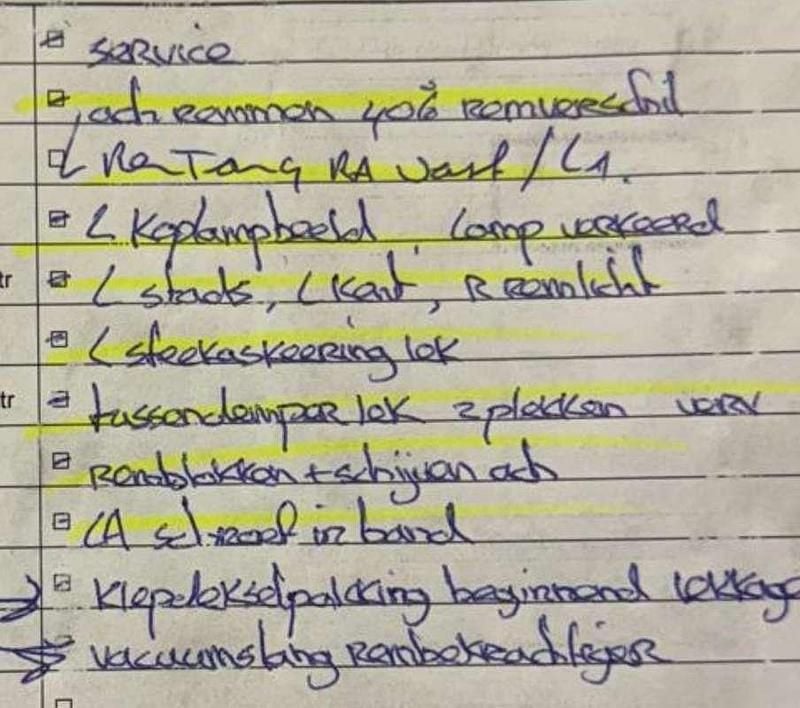 service
ach remmen 40% remverschil
L Remtang RA vast / LA.
L Koplampbeeld, lamp verkeerd
tr L stads, L Kent, R remlicht
L steekaskeering lek
tr tussendemper lek 2 plekken verv
Remblokken + schijven ach
LA schroef in band
Klepdekselpakking beginnend lekkage
vacuumslang Rembekrachtiger